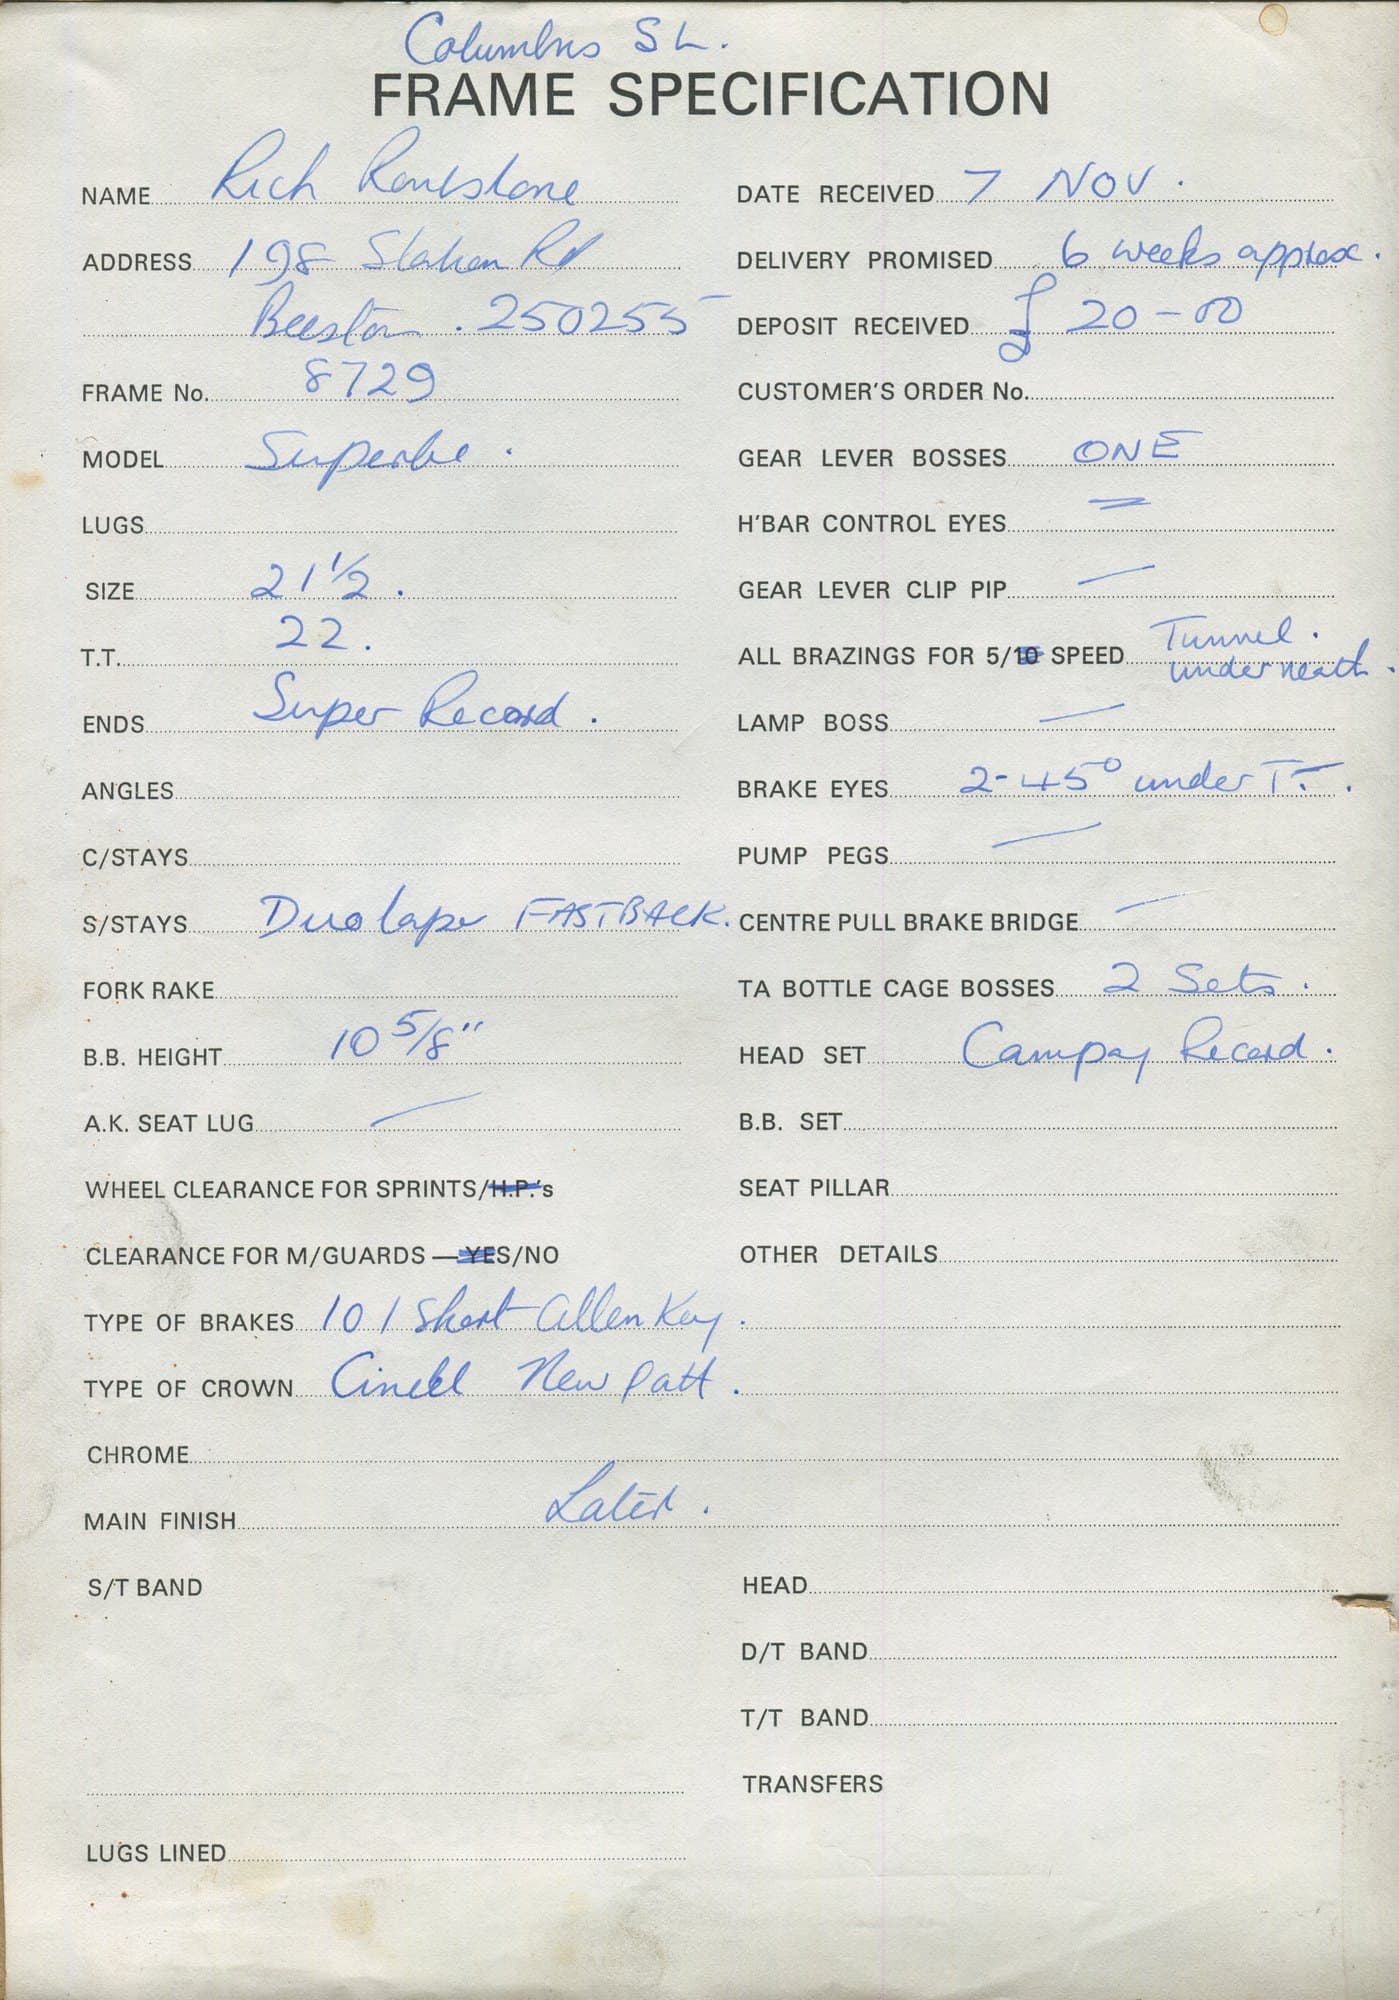 Columbus SL.
FRAME SPECIFICATION
NAME Rich
ADDRESS 198 Station Rd
Beeston . 250255
FRAME No. 8729
MODEL Superbe .
LUGS
SIZE 21 1/2 .
T.T. 22 .
ENDS Super Record .
ANGLES
C/STAYS
S/STAYS Duo tape FASTBACK.
FORK RAKE
B.B. HEIGHT 10 5/8"
A.K. SEAT LUG —
WHEEL CLEARANCE FOR SPRINTS/H.P.'s
CLEARANCE FOR M/GUARDS — YES/NO
TYPE OF BRAKES 101 Short Allen Key .
TYPE OF CROWN Cinelli New patt .
CHROME
MAIN FINISH Later .
S/T BAND
LUGS LINED
DATE RECEIVED 7 NOV .
DELIVERY PROMISED 6 weeks approx .
DEPOSIT RECEIVED £ 20-00
CUSTOMER'S ORDER No.
GEAR LEVER BOSSES ONE
H'BAR CONTROL EYES =
GEAR LEVER CLIP PIP —
ALL BRAZINGS FOR 5/10 SPEED Tunnel .
underneath .
LAMP BOSS —
BRAKE EYES 2-45° under T.T. .
PUMP PEGS —
CENTRE PULL BRAKE BRIDGE —
TA BOTTLE CAGE BOSSES 2 Sets .
HEAD SET Campag Record .
B.B. SET
SEAT PILLAR
OTHER DETAILS
HEAD
D/T BAND
T/T BAND
TRANSFERS